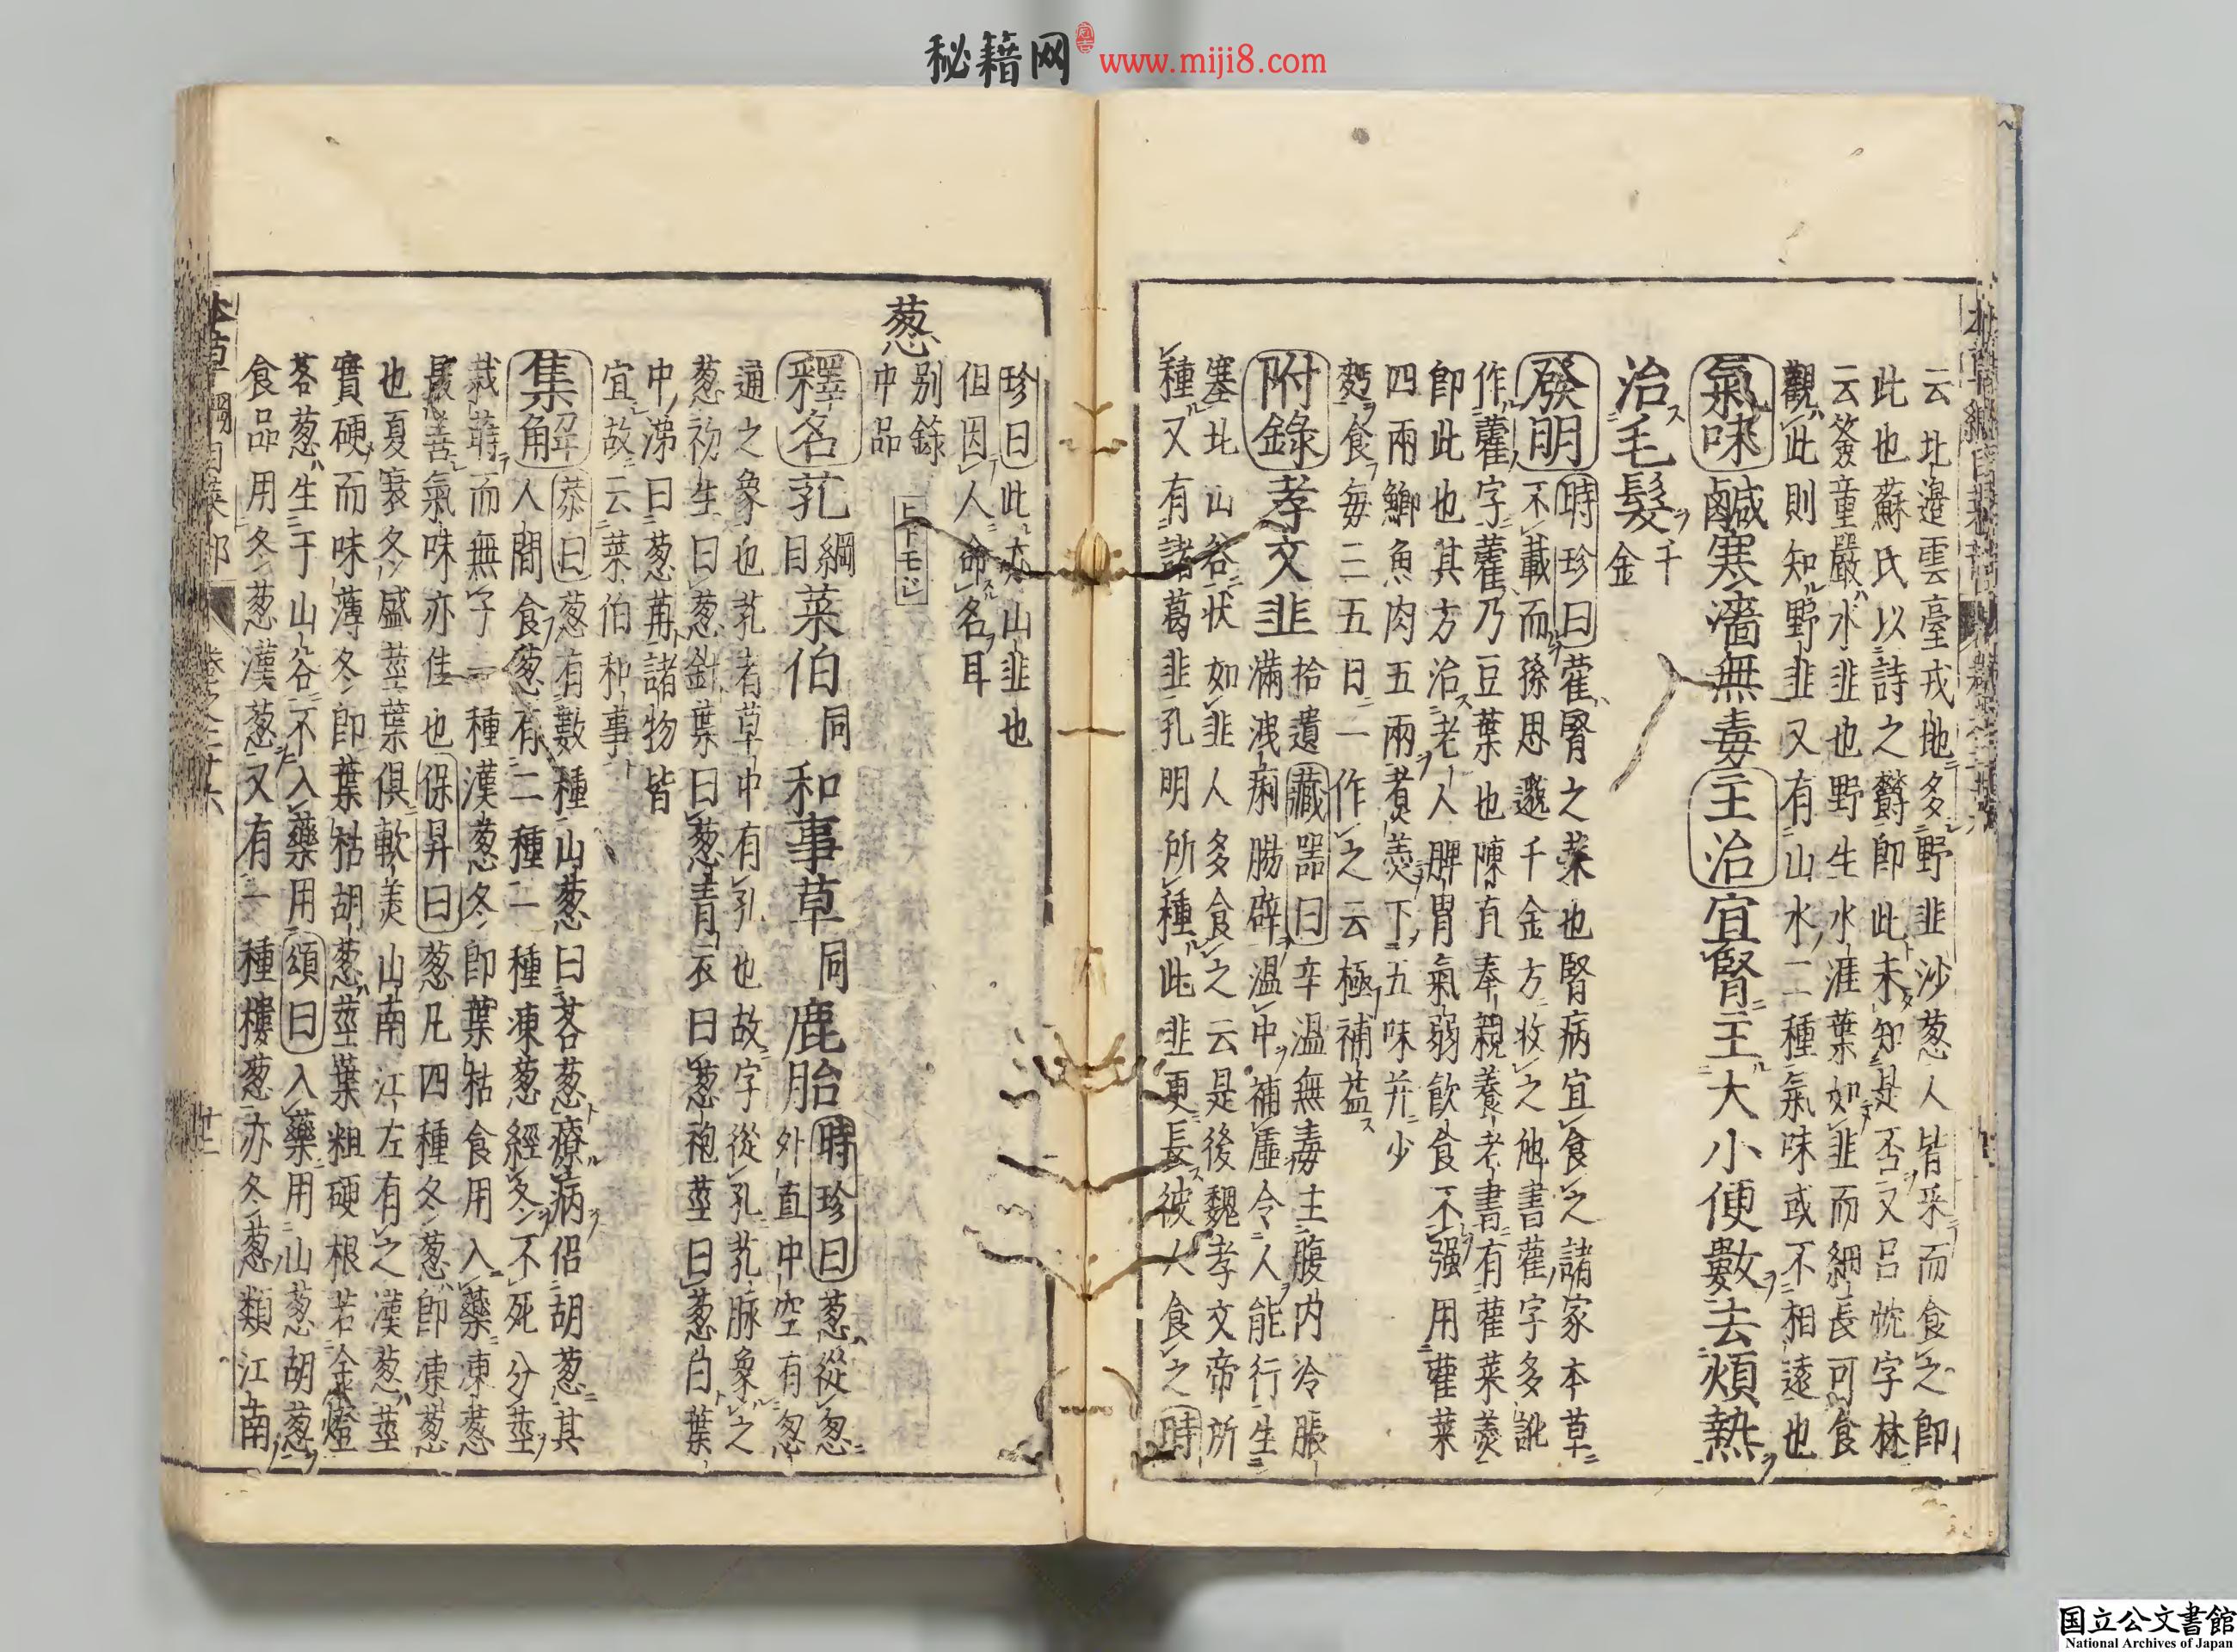 秘籍网 www.miji8.com
云北邊雲臺戎地多野韭沙葱人皆采而食之即
此也蘇氏以詩之欝即此未知是否又吕忱字林
云䇞童嚴水韭也野生水涯葉如韭而細長可食
觀此則知野韭又有山水二種氣味或不相遠也
氣味鹹寒濇無毒主治宜腎主大小便數去煩熱
治毛髮千金
發明時珍曰藿腎之菜也腎病宜食之諸家本草
不載而孫思邈千金方收之他書藿字多訛
作藿字藿乃豆葉也陳直奉親養老書有藿菜羹
即此也其方治老人脾胃氣弱飲食不强用藿菜
四兩鯽魚肉五兩煮羹下五味并少
麪食每三五日一作之云極補益
附錄孝文韭拾遺藏器曰辛温無毒主腹内冷脹
滿洩痢腸澼温中補虛令人能行生
塞北山谷状如韭人多食之云是後魏孝文帝所
種又有諸葛韭孔明所種此韭更長彼人食之時
珍曰此亦山韭也
但因人命名耳
葱
别錄
中品
ヒトモジ
釋名芤綱目菜伯同和事草同鹿胎時珍曰葱從怱
外直中空有怱
通之象也芤者草中有孔也故字從孔芤脉象之
葱初生曰葱針葉曰葱青衣曰葱袍莖曰葱白葉
中涕曰葱苒諸物皆
宜故云菜伯和事
集解恭曰葱有數種山葱曰茖葱療病侣胡葱其
人間食葱有二種一種凍葱經冬不死分莖
栽蒔而無子一種漢葱冬即葉枯食用入藥凍葱
最善氣味亦佳也保昇曰葱凡四種冬葱即凍葱
也夏衰冬盛莖葉俱軟美山南江左有之漢葱莖
實硬而味薄冬即葉枯胡葱莖葉粗硬根若金燈
茖葱生于山谷不入藥用頌曰入藥用山葱胡葱
食品用冬葱漢葱又有一種樓葱亦冬葱類江南
国立公文書館
National Archives of Japan